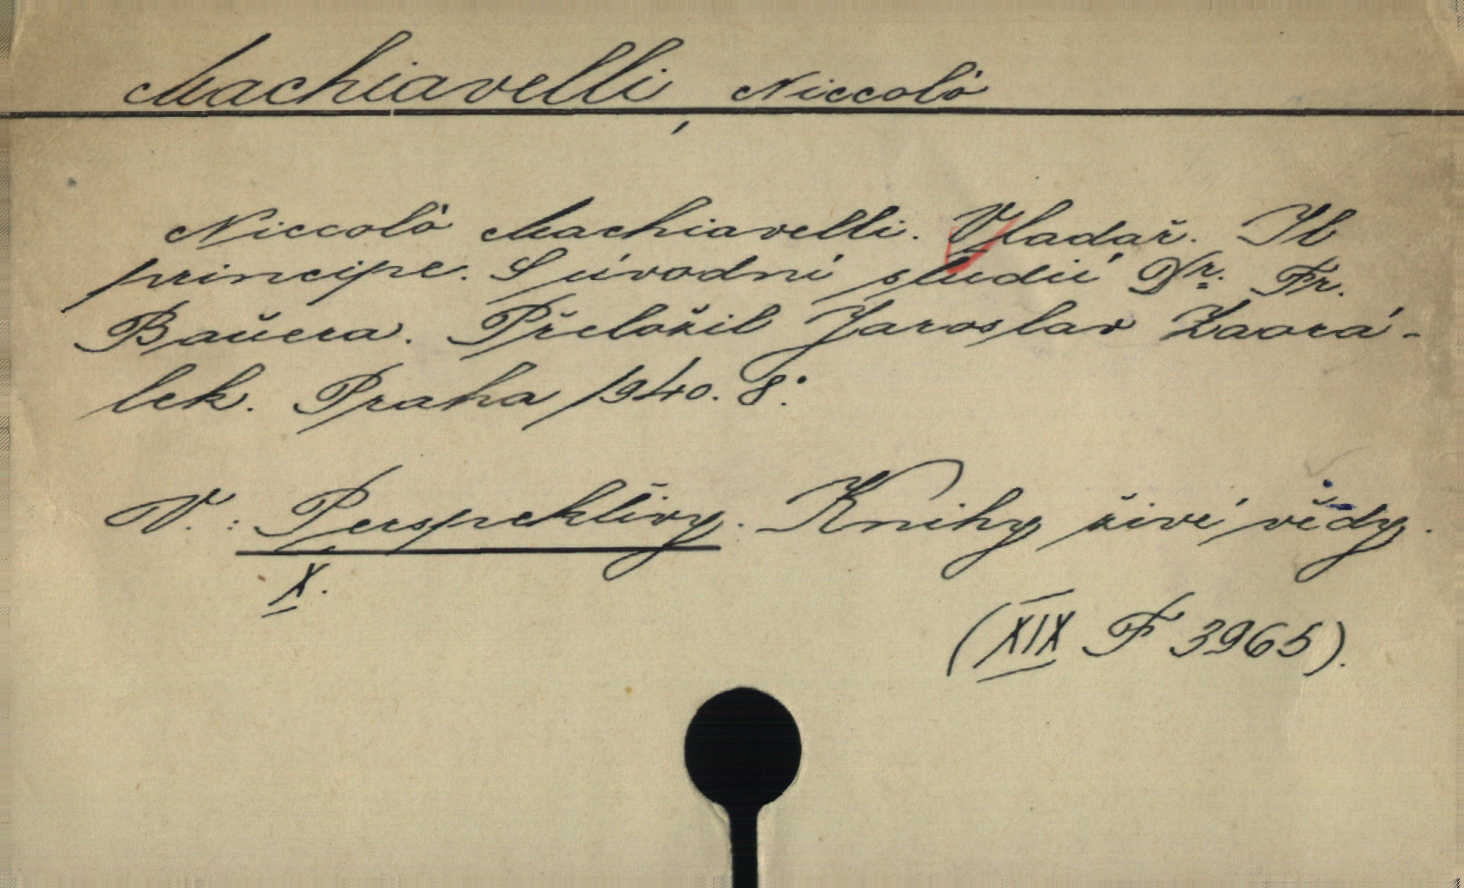 Machiavelli, Niccolò
Niccolò Machiavelli. Vladař. Il
principe. S úvodní studií Dr. Fr.
Bauera. Přeložil Jaroslav Zaorá-
lek. Praha 1940. 8°.
V.: Perspektivy. Knihy živé vědy.
X.
(XIX F 3965).